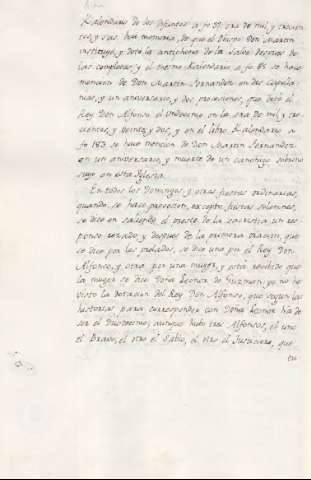 Kalendario de los difuntos a fo 37. era de mil, y trecien
tos, y seis, hai memoria, de que el Obispo Don Martin
instituyó, y dotó la antiphona de la Salve despues de
las completas, y el mismo Kalendario a fo 85 se hace
mencion de Don Martin Fernandez en dos Capella-
nias, y un aniversario, y dos procesiones, que dotó el
Rey Don Alfonso el Undecimo en la era de mil, y tre-
cientos, y veinte, y dos, y en el libro Kalendario a
fo 183. se hace mencion de Don Martin Fernandez
en un aniversario, y muerte de un canonigo sobrino
suyo en esta Iglesia.
En todos los Domingos, y otras fiestas ordinarias,
quando se hace procesion, excepto fiestas solemnes,
se dice en saliendo el preste de la sacristia un res-
ponso rezado, y despues de la primera oracion, que
se dice por los prelados, se dice una por el Rey Don
Alfonso, y otra por una muger, y está recibido que
la muger se dice Doña Leonor de Guzman, yo no he
visto la dotacion del Rey Don Alfonso, que segun las
historias para corresponder con Doña Leonor ha de
ser el Duodecimo, aunque hubo tres Alfonsos, el uno
el Bravo, el otro el Sabio, el otro el Justiciero, que
en